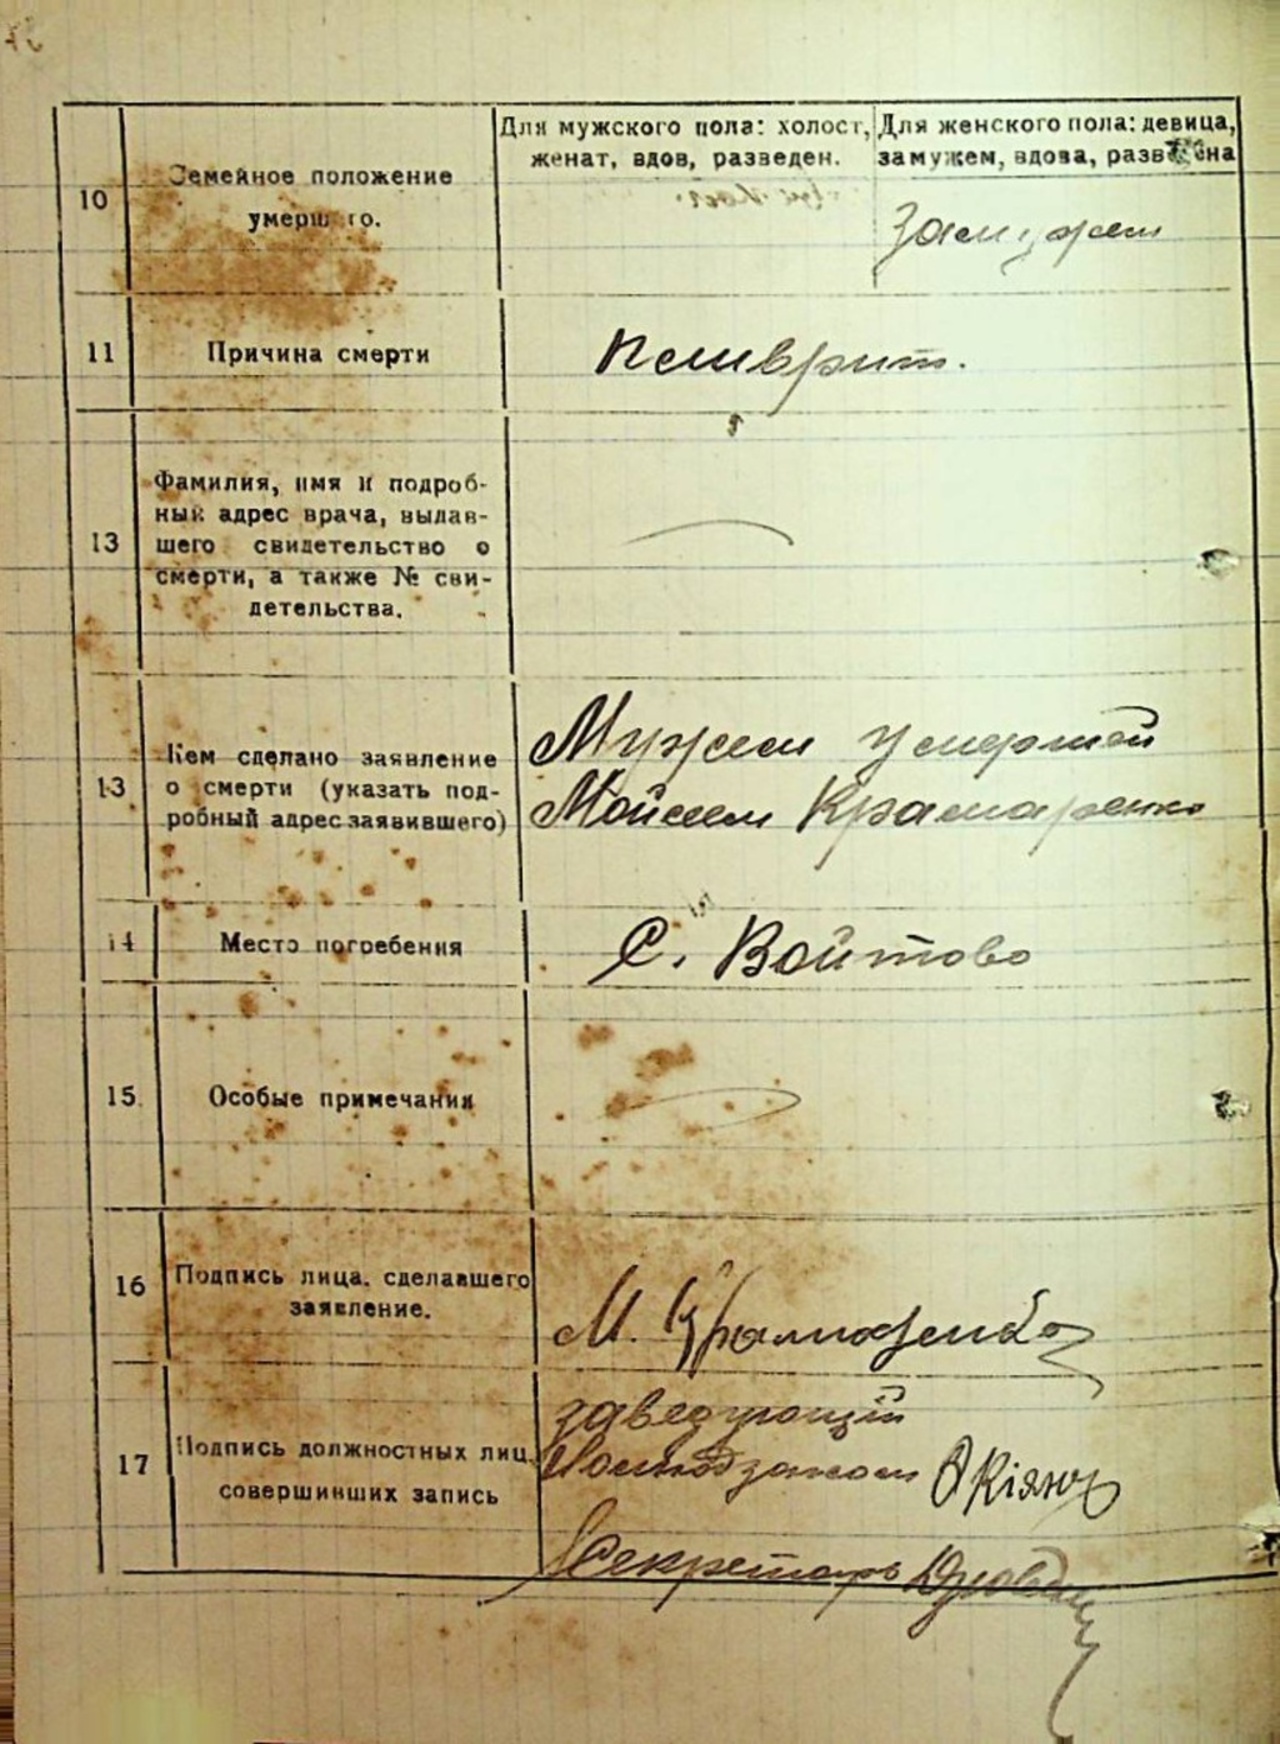 10
Семейное положение
умершего.
Для мужского пола: холост,
женат, вдов, разведен.
Для женского пола: девица,
замужем, вдова, разведена
Замужем
11
Причина смерти
Пемврит.
13
Фамилия, имя и подроб-
ный адрес врача, выдав-
шего свидетельство о
смерти, а также № сви-
детельства.
13
Кем сделано заявление
о смерти (указать под-
робный адрес заявившего)
Мужем умершей
Мойсеем Крамаренко
14
Место погребения
С. Войтово
15.
Особые примечания
16
Подпись лица, сделавшего
заявление.
М. Крамаренко
17
Подпись должностных лиц,
совершивших запись
заведующій
Секретарь